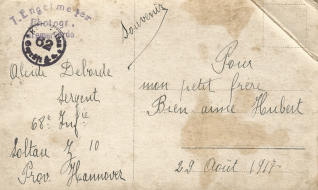 T. Engelmeyer
Photogr.
Souvenir
Alcide Deboude
Sergent
68e Inf ie
Soltau Z 10
Prov. Hannover
Pour
mon petit frère
Bien aimé Hubert
29 Août 1917